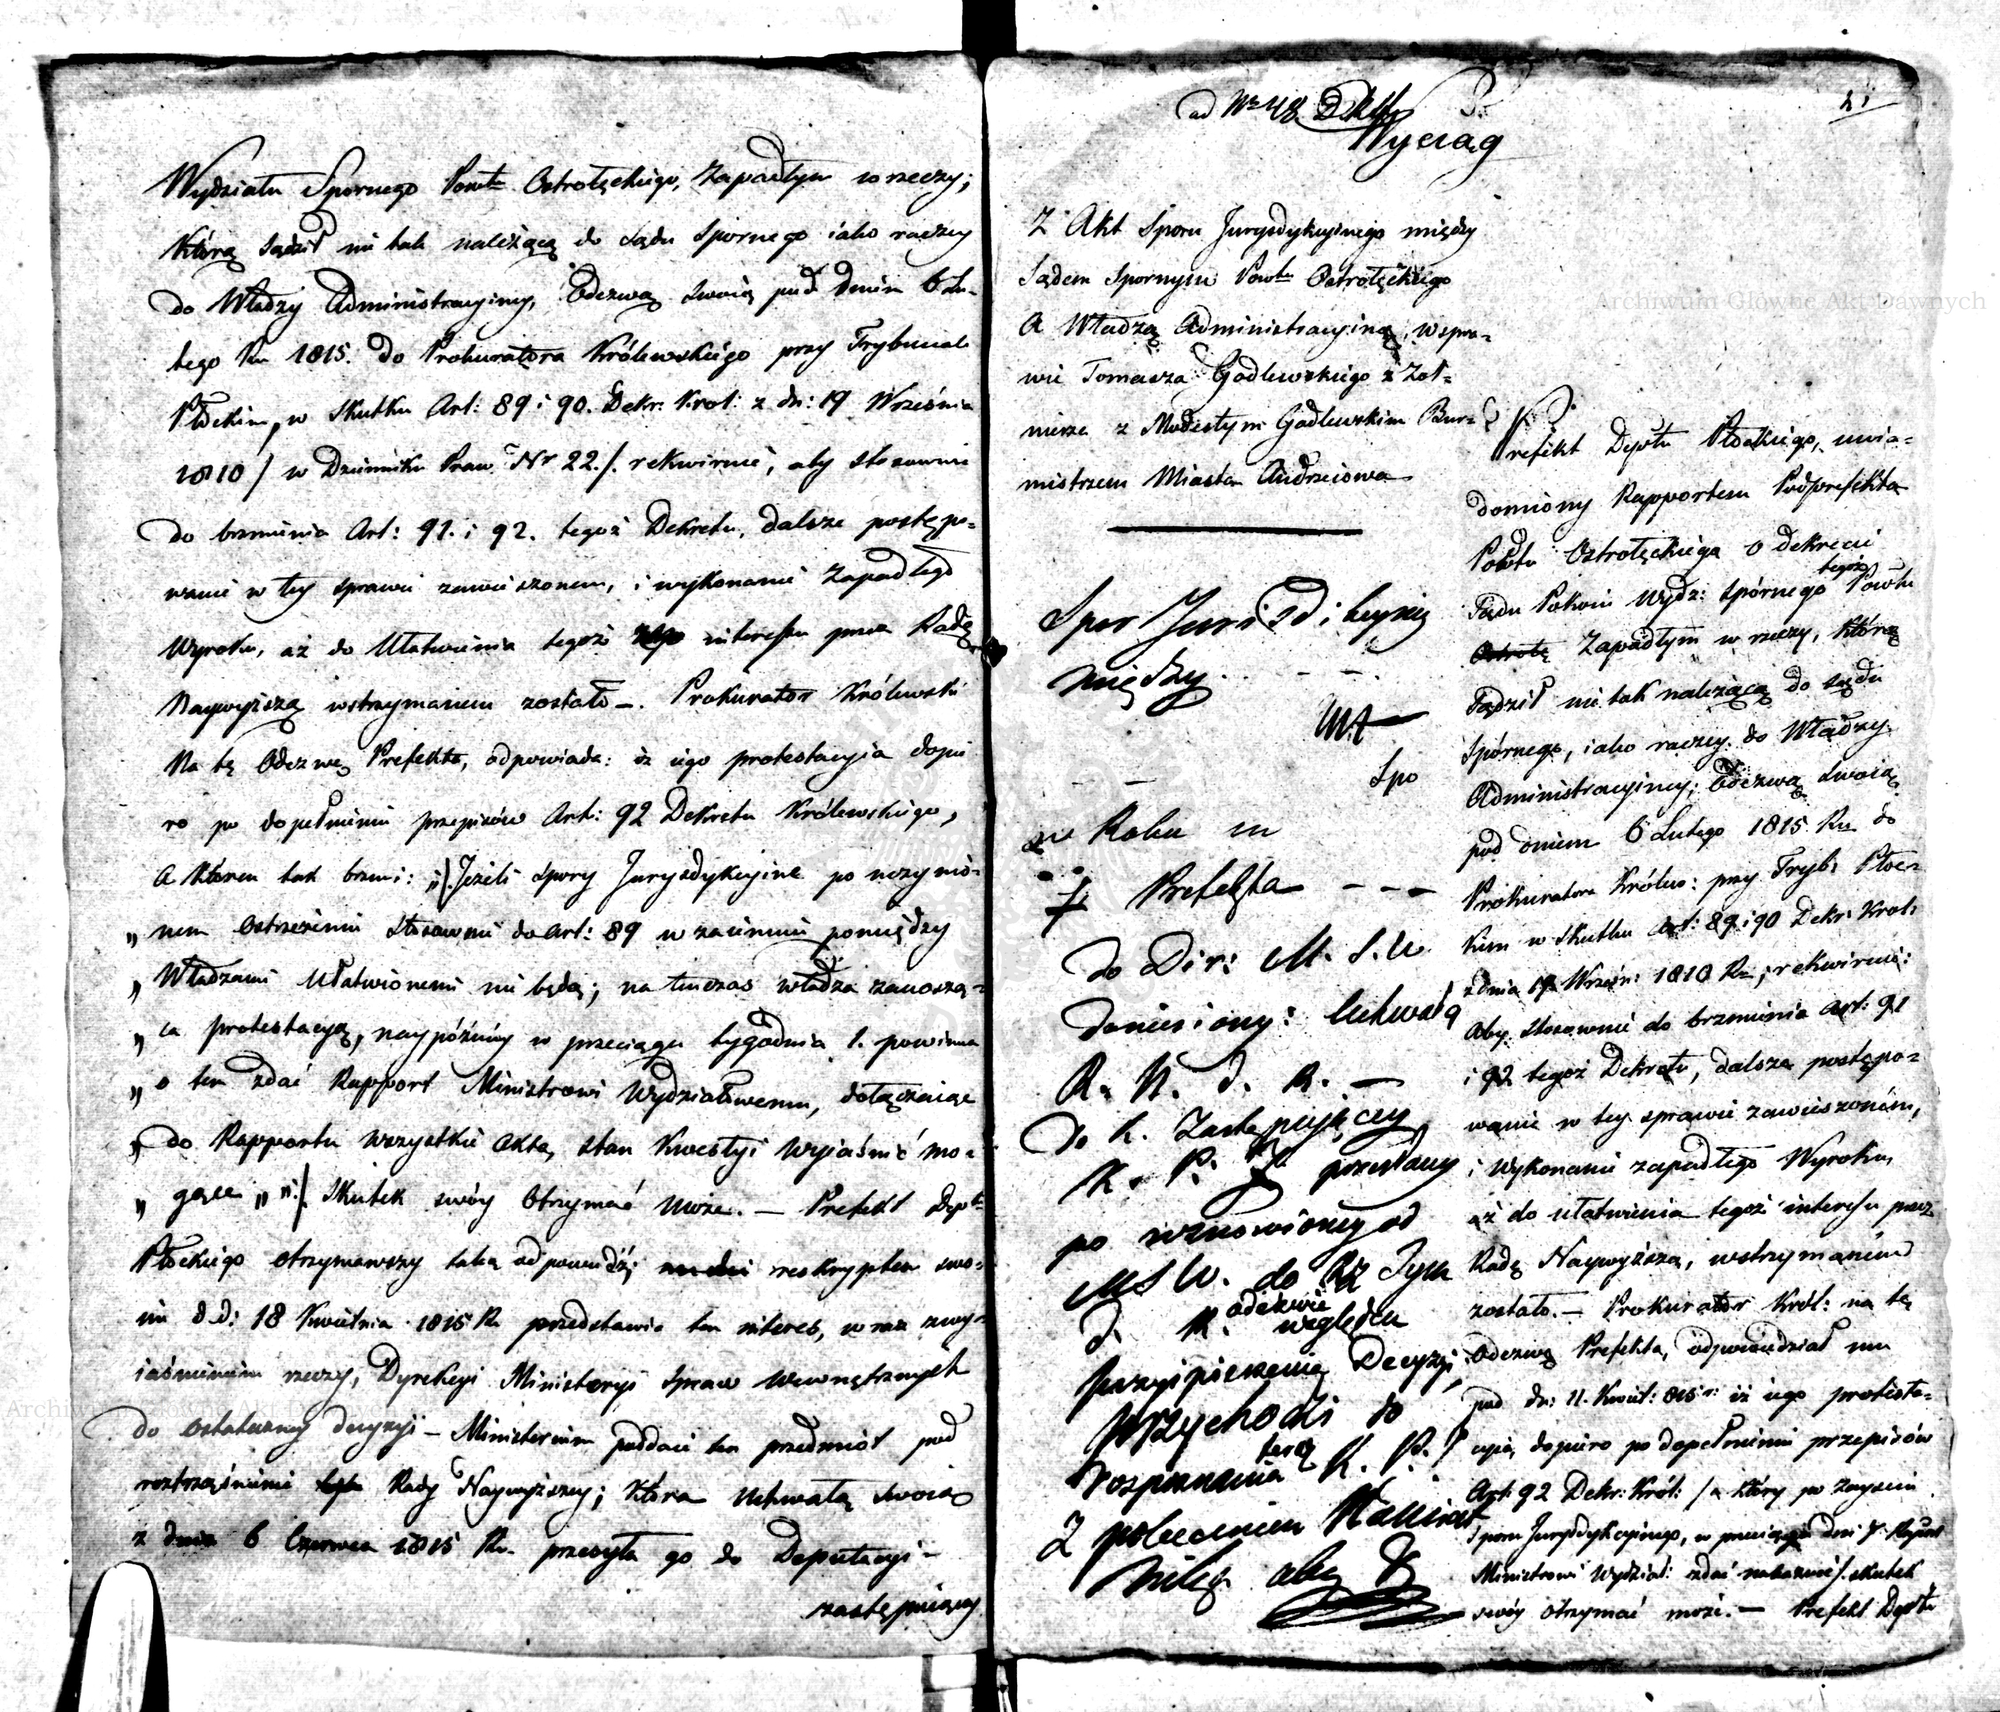 Wydziału Spornego Powtu Ostrołęckiego, Zapadłym w rzeczy;
którą sądził nie tak należącą do sądu spornego iako raczey
do Władzy Administracyiney, Odezwą swoią pod dniem 6 Lu-
tego Ru 1815. do Prokuratora Królewskiego przy Trybunale
Płockim, w skutku Art: 89 i 90. Dekr: Król: z dn: 19 Września
1810 / w Dzienniku Praw Nr 22./. rekwiruie, aby stosownie
do brzmienia Art: 91. i 92. tegoż Dekretu, dalsze postępo-
wanie w tey sprawie zawieszonem, i wykonanie Zapadłego
Wyroku, aż do Ułatwienia tegoż interesu przez Radę
Naywyższą wstrzymaniem zostało —. Prokurator Królewski
Na tę Odezwę Prefekta, odpowiada: iż iego protestacyia dopie
ro po dopełnieniu przepisów Art: 92 Dekretu Królewskiego,
a którem tak brzmi: „/. Jeżeli spory Jurysdykcyine po uczynio-
„ nem ostrzeżeniu stosownie do Art: 89 wzaiemnie pomiędzy
„ Władzami Ułatwionemi nie będą; na tenczas władza zanoszą-
„ ca protestacyą, naypóźniey w przeciągu tygodnia 1. powinna
„ o tem zdać Rapport Ministrowi Wydziałowemu, dołączaiąc
„ do Rapportu wszystkie Akta, stan kwestyi wyiaśnić mo-
„ gące „ „./ skutek swóy Otrzymać może. — Prefekt Deptu
Płockiego otrzymawszy taką odpowiedź; reskryptem swo-
im d.d: 18 Kwietnia 1815 Ru przedstawia ten interes, wraz z wy-
iaśnieniem rzeczy, Dyrekcyi Ministeryi Spraw Wewnętrznych
do ostateczney decyzyi — Ministerium poddaie ten przedmiot pod
roztrząśnienie Rady Naywyższey; która Uchwałą swoią
z dnia 6 Czerwca 1815 Ru. przesyła go do Deputacyi —
zastępuiącey
21
ad Nro 48
Wyciąg
Z Akt Sporu Jurysdykcyinego między
Sądem Spornym Powtu Ostrołęckiego
A Władzą Administracyiną, w spra-
wie Tomasza Godlewskiego z Żoł-
nierza z Modestym Godlewskim Bur-
mistrzem Miasta Andrzeiowa
Spor Jurisdikcyiny
między . . — —
Spo
w Roku
Prefekta — — —
do Dir: M. S. W
doniesiony: Uchwałą
R. N. d. R. —
do R. Zastępuiącey
R. P. przesłany
po wznowioney od
M S W. do
d. R. odezwie
względem
przyspieszenia Decyzyi,
przychodzi do
rozpoznania teraz R. P.
Z poleceniem
Prefekt Deptu Płockiego, uwia-
domiony Rapportem Podprefekta
Powtu Ostrołęckiego o dekrecie
Sądu Pokoiu Wydz: Spórnego tegoż Powtu
Zapadłym w rzeczy, którą
Sądził nie tak należącą do sądu
Spórnego, iako raczey do Władzy
Administracyiney; Odezwą swoią
pod dniem 6 Lutego 1815 Ru do
Prokuratora Królew: przy Tryb: Płoc-
kim w skutku Art: 89 i 90 Dekr: Król:
z dnia 19 Wrześn: 1810 Ru, rekwiruie:
Aby stosownie do brzmienia Art: 91
i 92 tegoż Dekretu, dalsze postępo-
wanie w tey sprawie zawieszonem,
i Wykonanie zapadłego Wyroku
aż do ułatwienia tegoż interesu przez
Radę Naywyższą, wstrzymaniem
zostało. — Prokurator Król: na tę
Odezwę Prefekta, odpowiedział mu
pod dn: 11. Kwiet: 815 r: iż iego protesta-
cyia, dopiero po dopełnieniu przepisów
Art: 92 Dekr: Król: / a który po zayściu
Sporu Jurysdykcyinego, w przeciągu dni 7. Raport
Ministrowi Wydział: zdać nakazuie /. skutek
swóy otrzymać może. — Prefekt Deptu
Archiwum Główne Akt Dawnych
Archiwum Główne Akt Dawnych